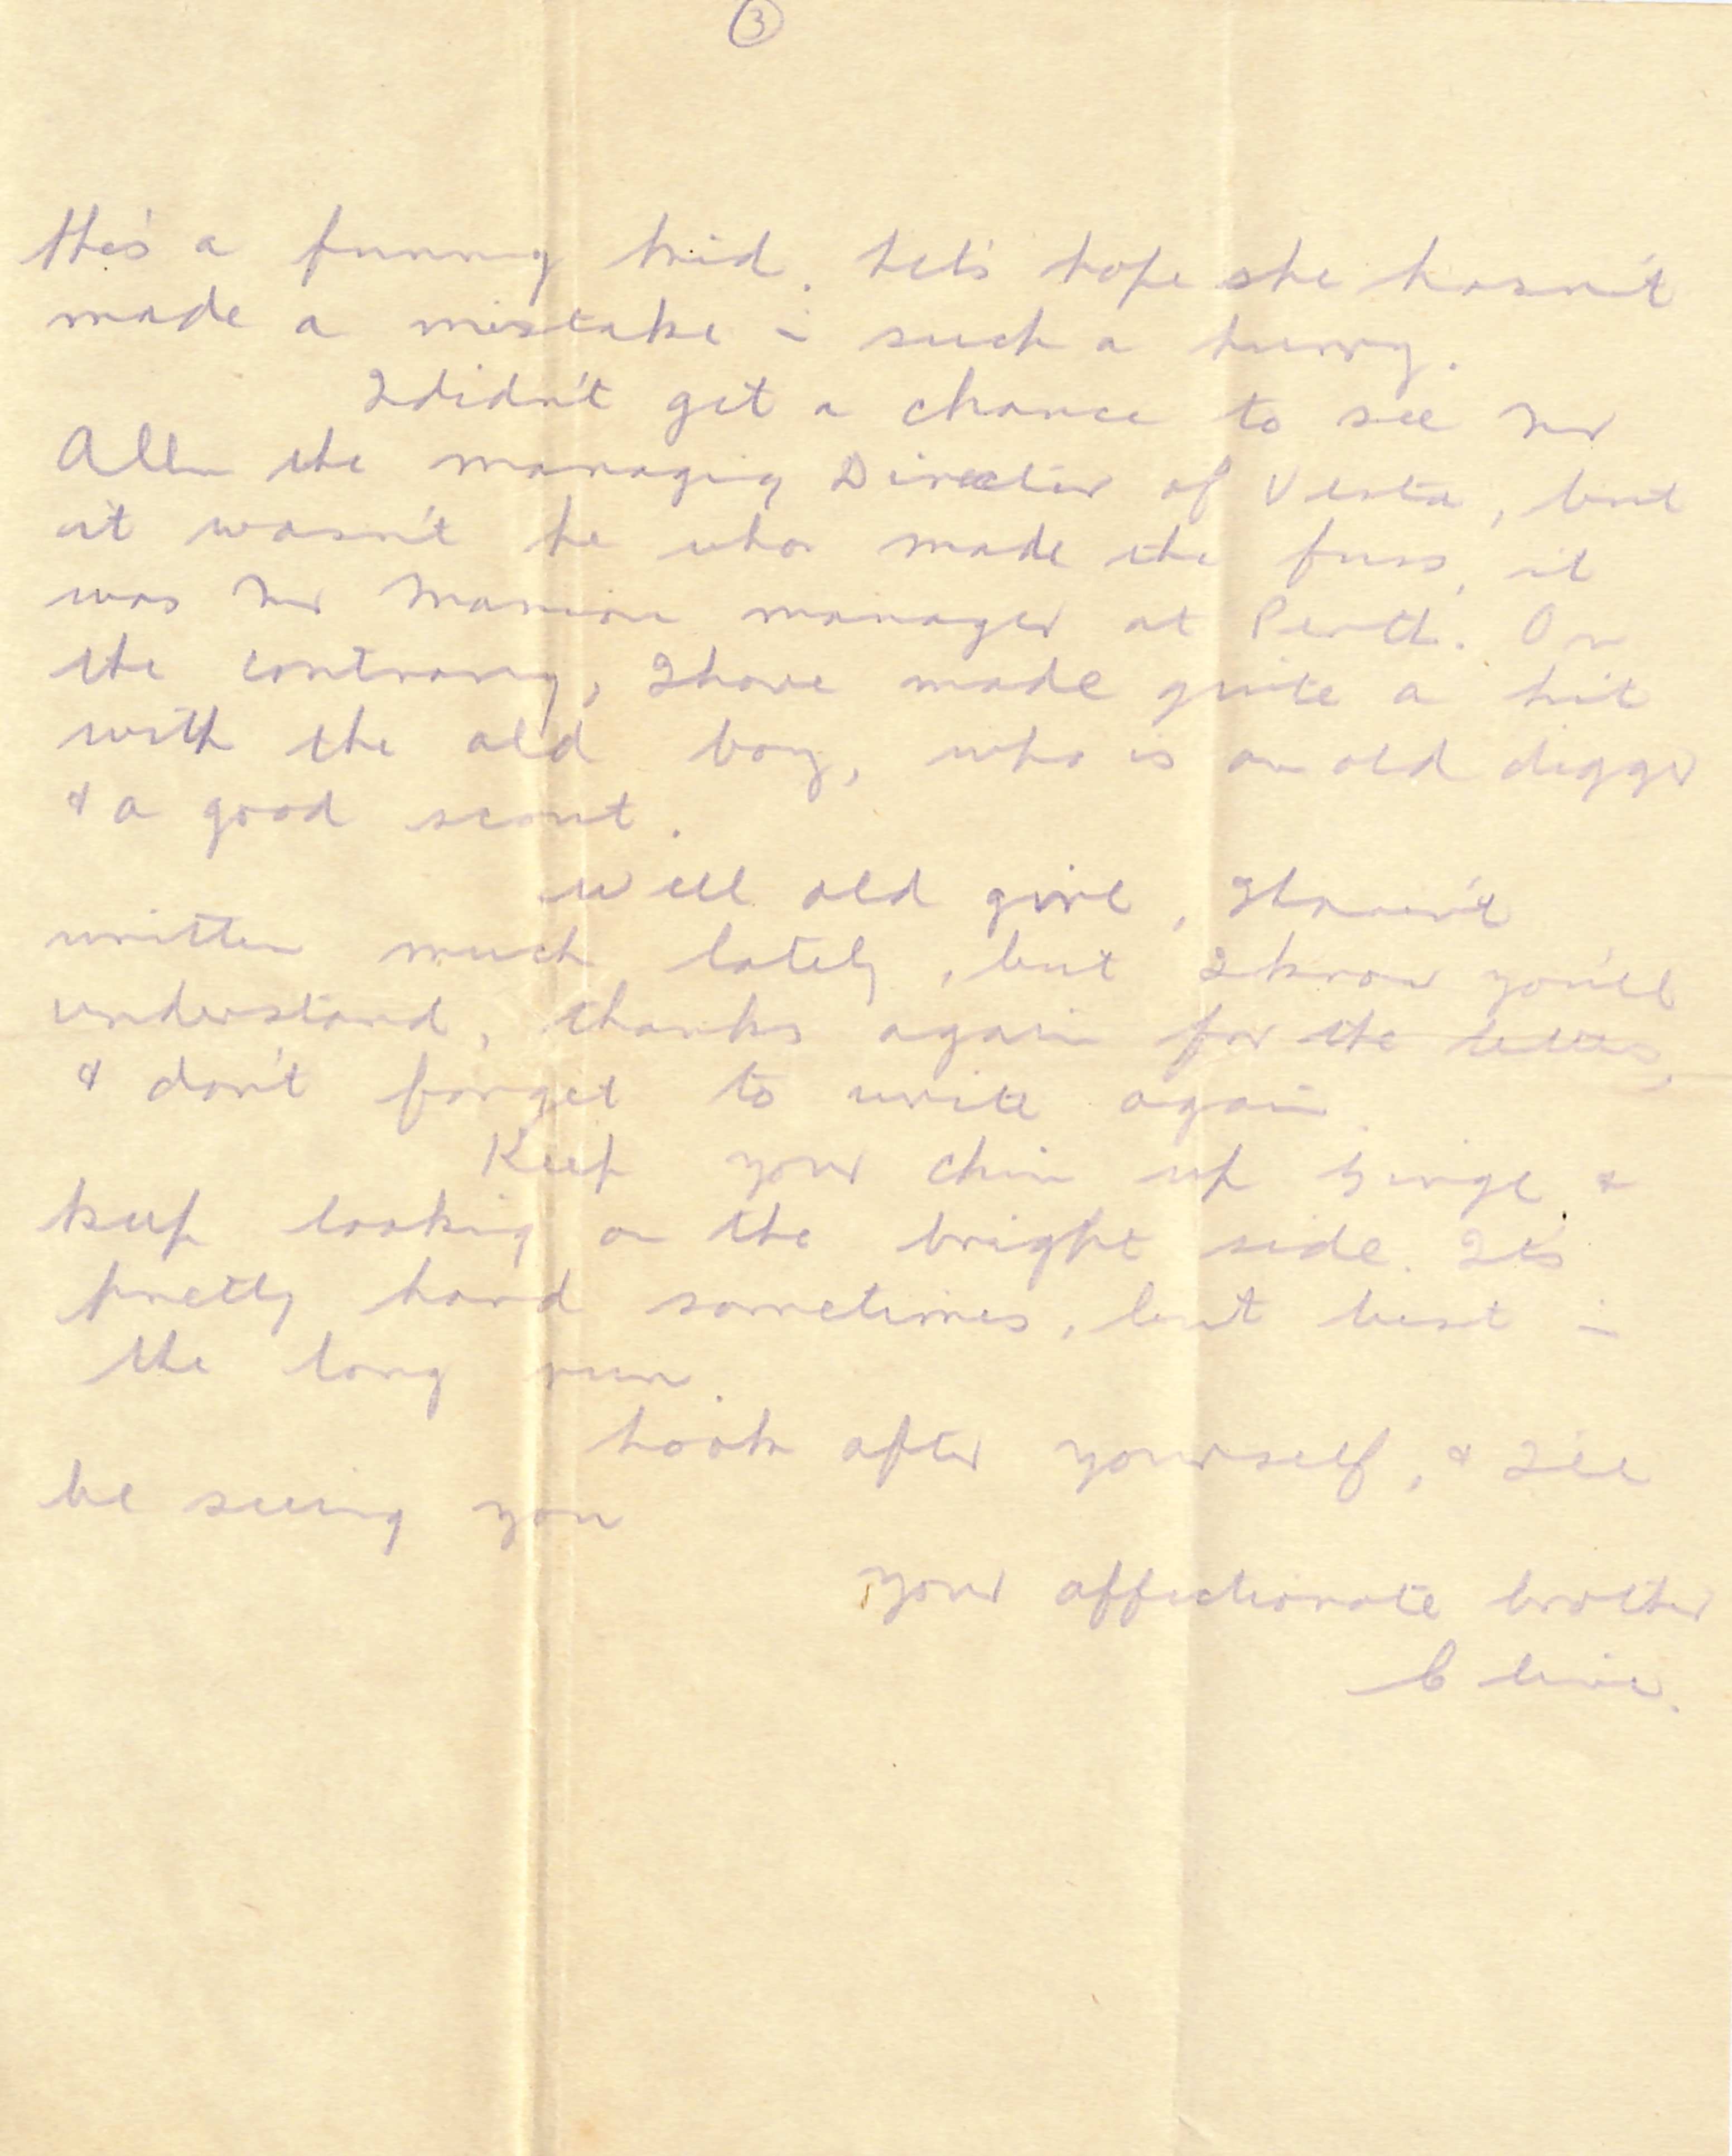 ③
She's a funny kid. Let's hope she hasn't
made a mistake in such a hurry.
I didn't get a chance to see Mr
Allen the managing Director of Vesta, but
it wasn't he who made the fuss, it
was Mr manager at Perth. On
the contrary, I have made quite a hit
with the old boy, who is an old digger
& a good scout.
Well old girl, I haven't
written much lately, but I know you'll
understand, thanks again for the letters,
& don't forget to write again.
Keep your chin up Ginge &
keep looking on the bright side. It's
pretty hard sometimes, but best in
the long run.
Look after yourself, & I'll
be seeing you
your affectionate brother
Clive.